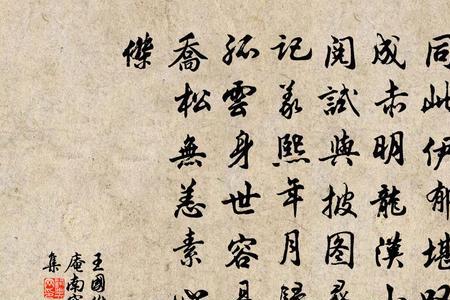 同此伊郁堪
成赤明龍漢
閱試與披圖尋
記義熙年月歸
孤雲身世容
喬松無恙素心
傑
王國維
庵南窗
集